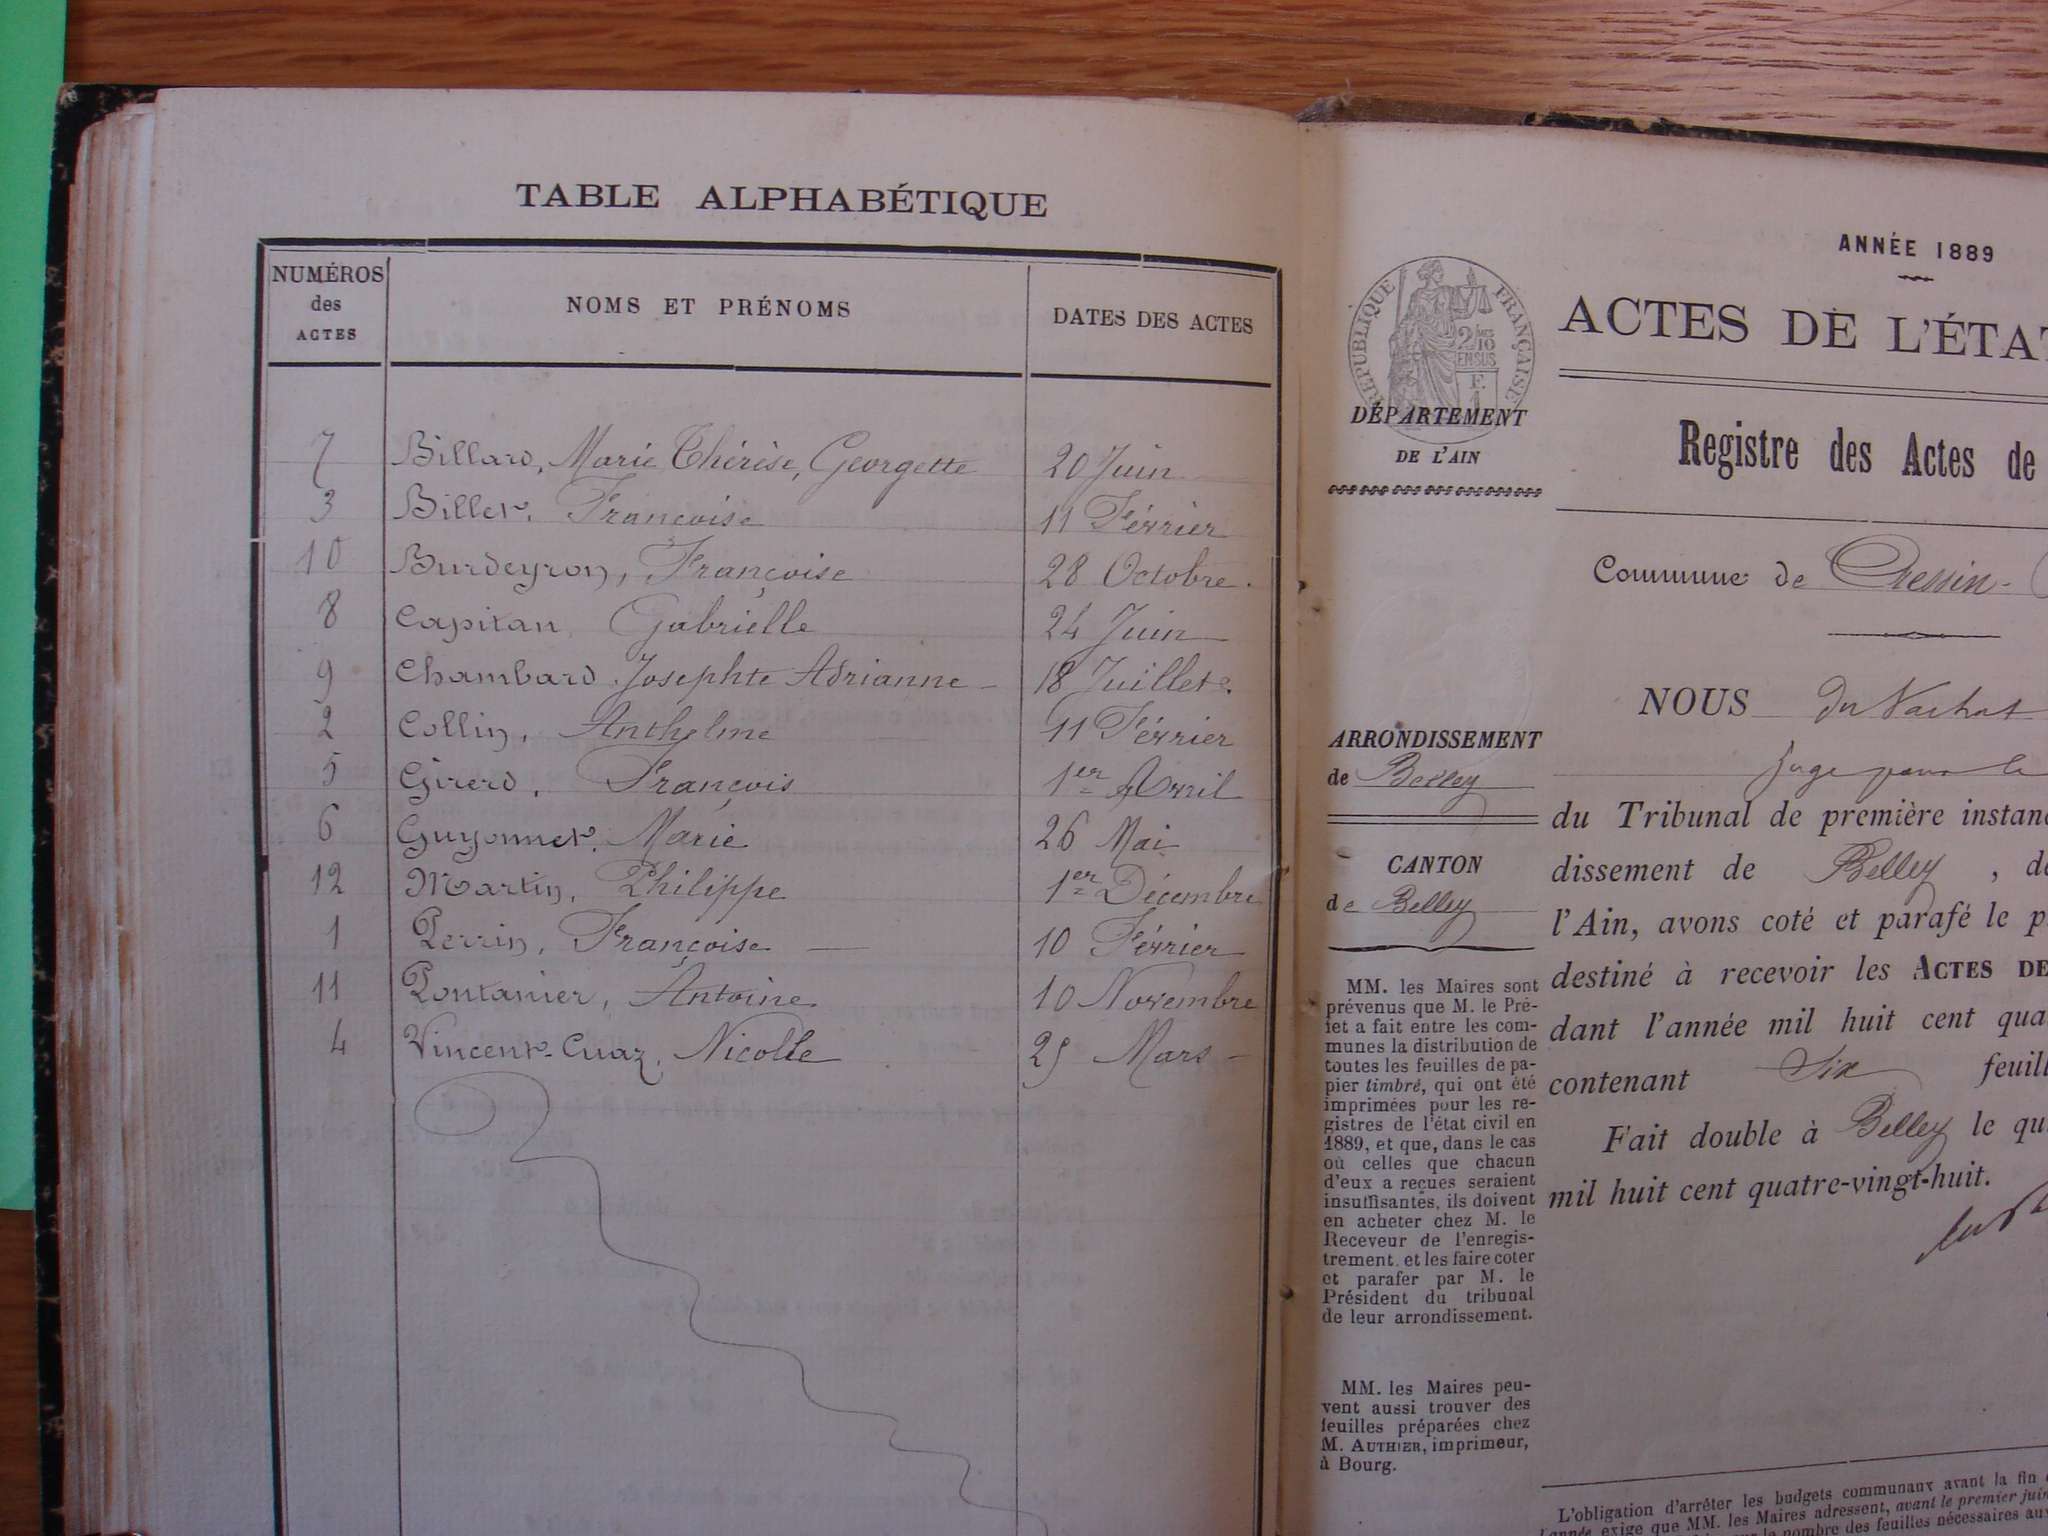 TABLE ALPHABÉTIQUE
NUMÉROS des ACTES NOMS ET PRÉNOMS DATES DES ACTES
7 Billard, Marie Thérèse, Georgette 20 Juin
3 Billet, Françoise 11 Février
10 Burdeyron, Françoise 28 Octobre.
8 Capitan, Gabrielle 24 Juin
9 Chambard Josephte Adrianne 18 Juillet
2 Collin, Anthelme 11 Février
5 Girerd, François 1er Avril
6 Guyonnet, Marie 26 Mai
12 Martin, Philippe 1er Décembre
1 Perrin, Françoise 10 Février
11 Pontanier, Antoine 10 Novembre
4 Vincent-Cuaz, Nicolle 25 Mars
ANNÉE 1889
ACTES DE L'ÉTAT
RÉPUBLIQUE FRANÇAISE
2/10 EN SUS
DÉPARTEMENT
DE L'AIN
Registre des Actes de
Commune de Cressin-
NOUS du Vachat
juge pour le
ARRONDISSEMENT
de Belley
du Tribunal de première instan
CANTON
de Belley
dissement de Belley, d
l'Ain, avons coté et parafé le p
destiné à recevoir les ACTES DE
dant l'année mil huit cent qua
contenant Six feuill
Fait double à Belley le qu
mil huit cent quatre-vingt-huit.
MM. les Maires sont
prévenus que M. le Pré-
fet a fait entre les com-
munes la distribution de
toutes les feuilles de pa-
pier timbré, qui ont été
imprimées pour les re-
gistres de l'état civil en
1889, et que, dans le cas
où celles que chacun
d'eux a reçues seraient
insuffisantes, ils doivent
en acheter chez M. le
Receveur de l'enregis-
trement, et les faire coter
et parafer par M. le
Président du tribunal
de leur arrondissement.
MM. les Maires peu-
vent aussi trouver des
feuilles préparées chez
M. AUTHIER, imprimeur,
à Bourg.
L'obligation d'arrêter les budgets communaux avant la fin
l'année exige que MM. les Maires adressent, avant le premier juin
le nombre des feuilles nécessaires au